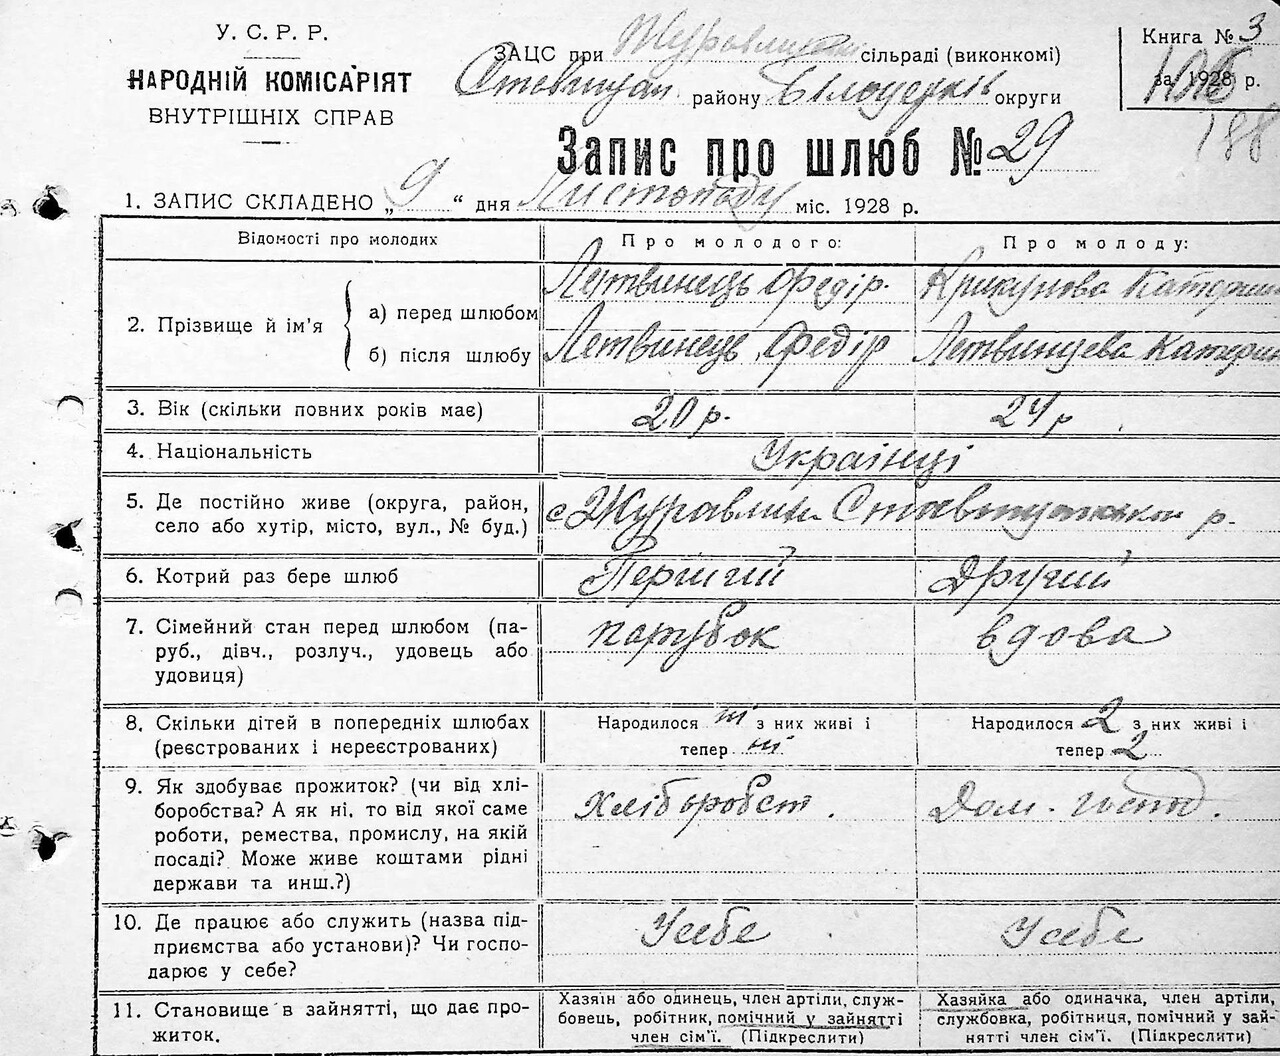 У. С. Р. Р.
НАРОДНІЙ КОМІСАРІЯТ
ВНУТРІШНІХ СПРАВ
ЗАЦС при сільраді (виконкомі)
району округи
Книга № 3
за 1928 р.
188
Запис про шлюб № 29
1. ЗАПИС СКЛАДЕНО „ 9 “ дня Листопаду міс. 1928 р.
Відомості про молодих
Про молодого:
Про молоду:
2. Прізвище й ім'я
а) перед шлюбом
Летвинець Федір.
Крикунова Катерин
б) після шлюбу
Летвинець Федір
Летвинцева Катерин
3. Вік (скільки повних років має)
20 р.
24 р
4. Національність
Українці
5. Де постійно живе (округа, район,
село або хутір, місто, вул., № буд.)
с р.
6. Котрий раз бере шлюб
Перший
Другий
7. Сімейний стан перед шлюбом (па-
руб., дівч., розлуч., удовець або
удовиця)
парубок
вдова
8. Скільки дітей в попередніх шлюбах
(реєстрованих і нереєстрованих)
Народилося ні з них живі і
тепер ні
Народилося 2 з них живі і
тепер 2
9. Як здобуває прожиток? (чи від хлі-
боробства? А як ні, то від якої саме
роботи, ремества, промислу, на якій
посаді? Може живе коштами рідні
держави та инш.?)
Хліборобст.
Дом. господ.
10. Де працює або служить (назва під-
приємства або установи)? Чи госпо-
дарює у себе?
У себе
У себе
11. Становище в зайнятті, що дає про-
житок.
Хазяїн або одинець, член артіли, служ-
бовець, робітник, помічний у зайнятті
член сім'ї. (Підкреслити)
Хазяйка або одиначка, член артіли,
службовка, робітниця, помічний у зай-
нятті член сім'ї. (Підкреслити)